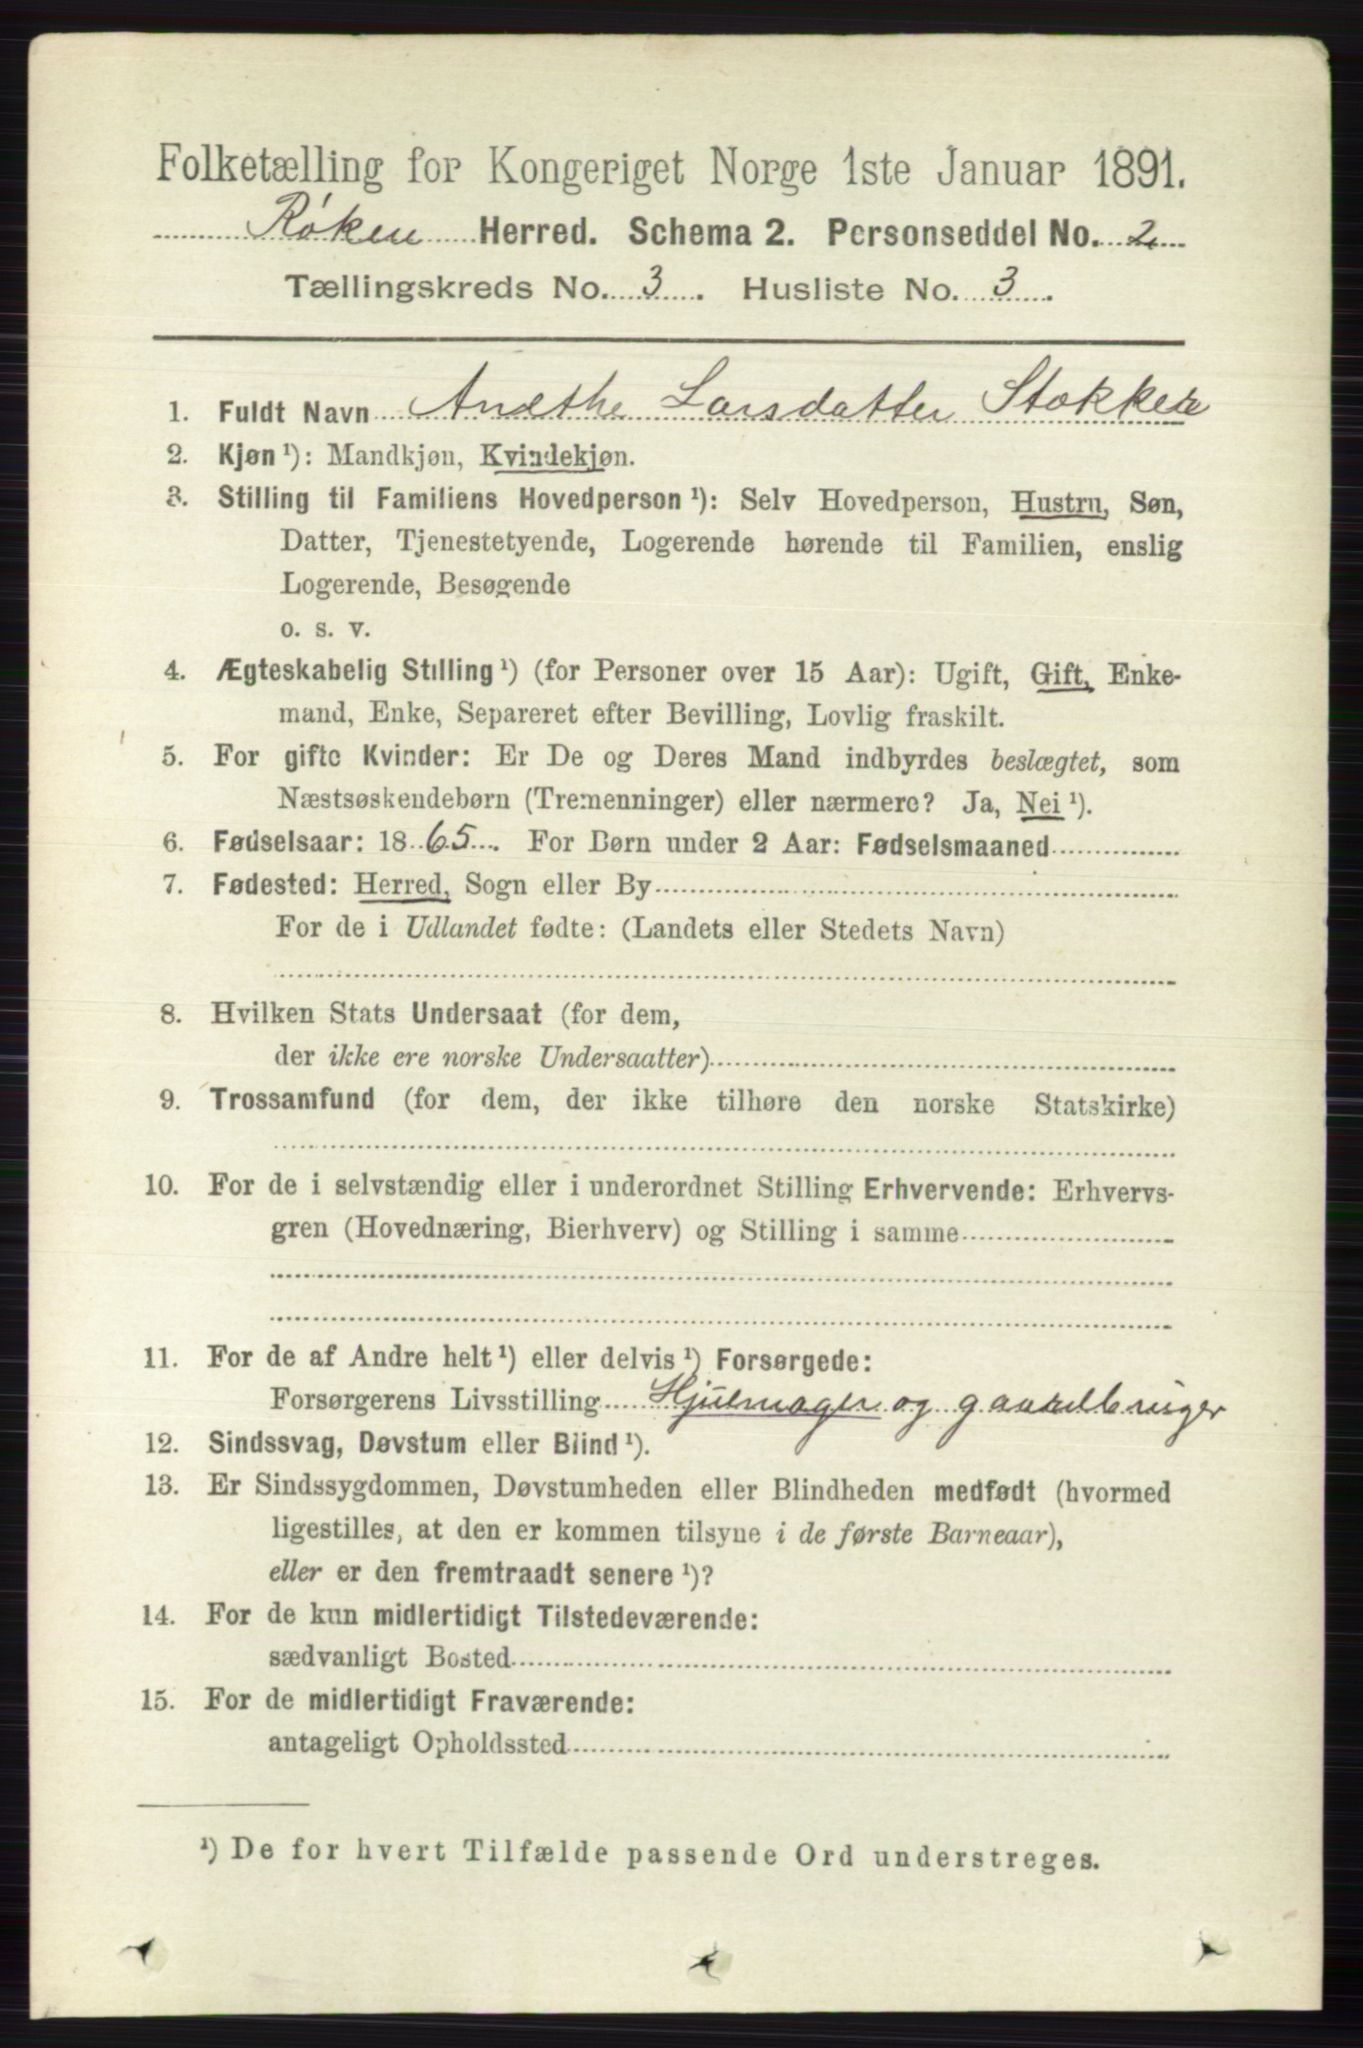 Folketælling for Kongeriget Norge 1ste Januar 1891.
Røken Herred. Schema 2. Personseddel No. 2
Tællingskreds No. 3. Husliste No. 3.
1. Fuldt Navn Anethe Larsdatter Stokker
2. Kjøn ¹): Mandkjøn, Kvindekjøn.
3. Stilling til Familiens Hovedperson ¹): Selv Hovedperson, Hustru, Søn,
Datter, Tjenestetyende, Logerende hørende til Familien, enslig
Logerende, Besøgende
o. s. v.
4. Ægteskabelig Stilling ¹) (for Personer over 15 Aar): Ugift, Gift, Enke-
mand, Enke, Separeret efter Bevilling, Lovlig fraskilt.
5. For gifte Kvinder: Er De og Deres Mand indbyrdes beslægtet, som
Næstsøskendebørn (Tremenninger) eller nærmere? Ja, Nei ¹).
6. Fødselsaar: 1865. For Børn under 2 Aar: Fødselsmaaned
7. Fødested: Herred, Sogn eller By
For de i Udlandet fødte: (Landets eller Stedets Navn)
8. Hvilken Stats Undersaat (for dem,
der ikke ere norske Undersaatter)
9. Trossamfund (for dem, der ikke tilhøre den norske Statskirke)
10. For de i selvstændig eller i underordnet Stilling Erhvervende: Erhvervs-
gren (Hovednæring, Bierhverv) og Stilling i samme
11. For de af Andre helt ¹) eller delvis ¹) Forsørgede:
Forsørgerens Livsstilling Hjulmager og gaardbruger
12. Sindssvag, Døvstum eller Blind ¹).
13. Er Sindssygdommen, Døvstumheden eller Blindheden medfødt (hvormed
ligestilles, at den er kommen tilsyne i de første Barneaar),
eller er den fremtraadt senere ¹)?
14. For de kun midlertidigt Tilstedeværende:
sædvanligt Bosted
15. For de midlertidigt Fraværende:
antageligt Opholdssted
¹) De for hvert Tilfælde passende Ord understreges.